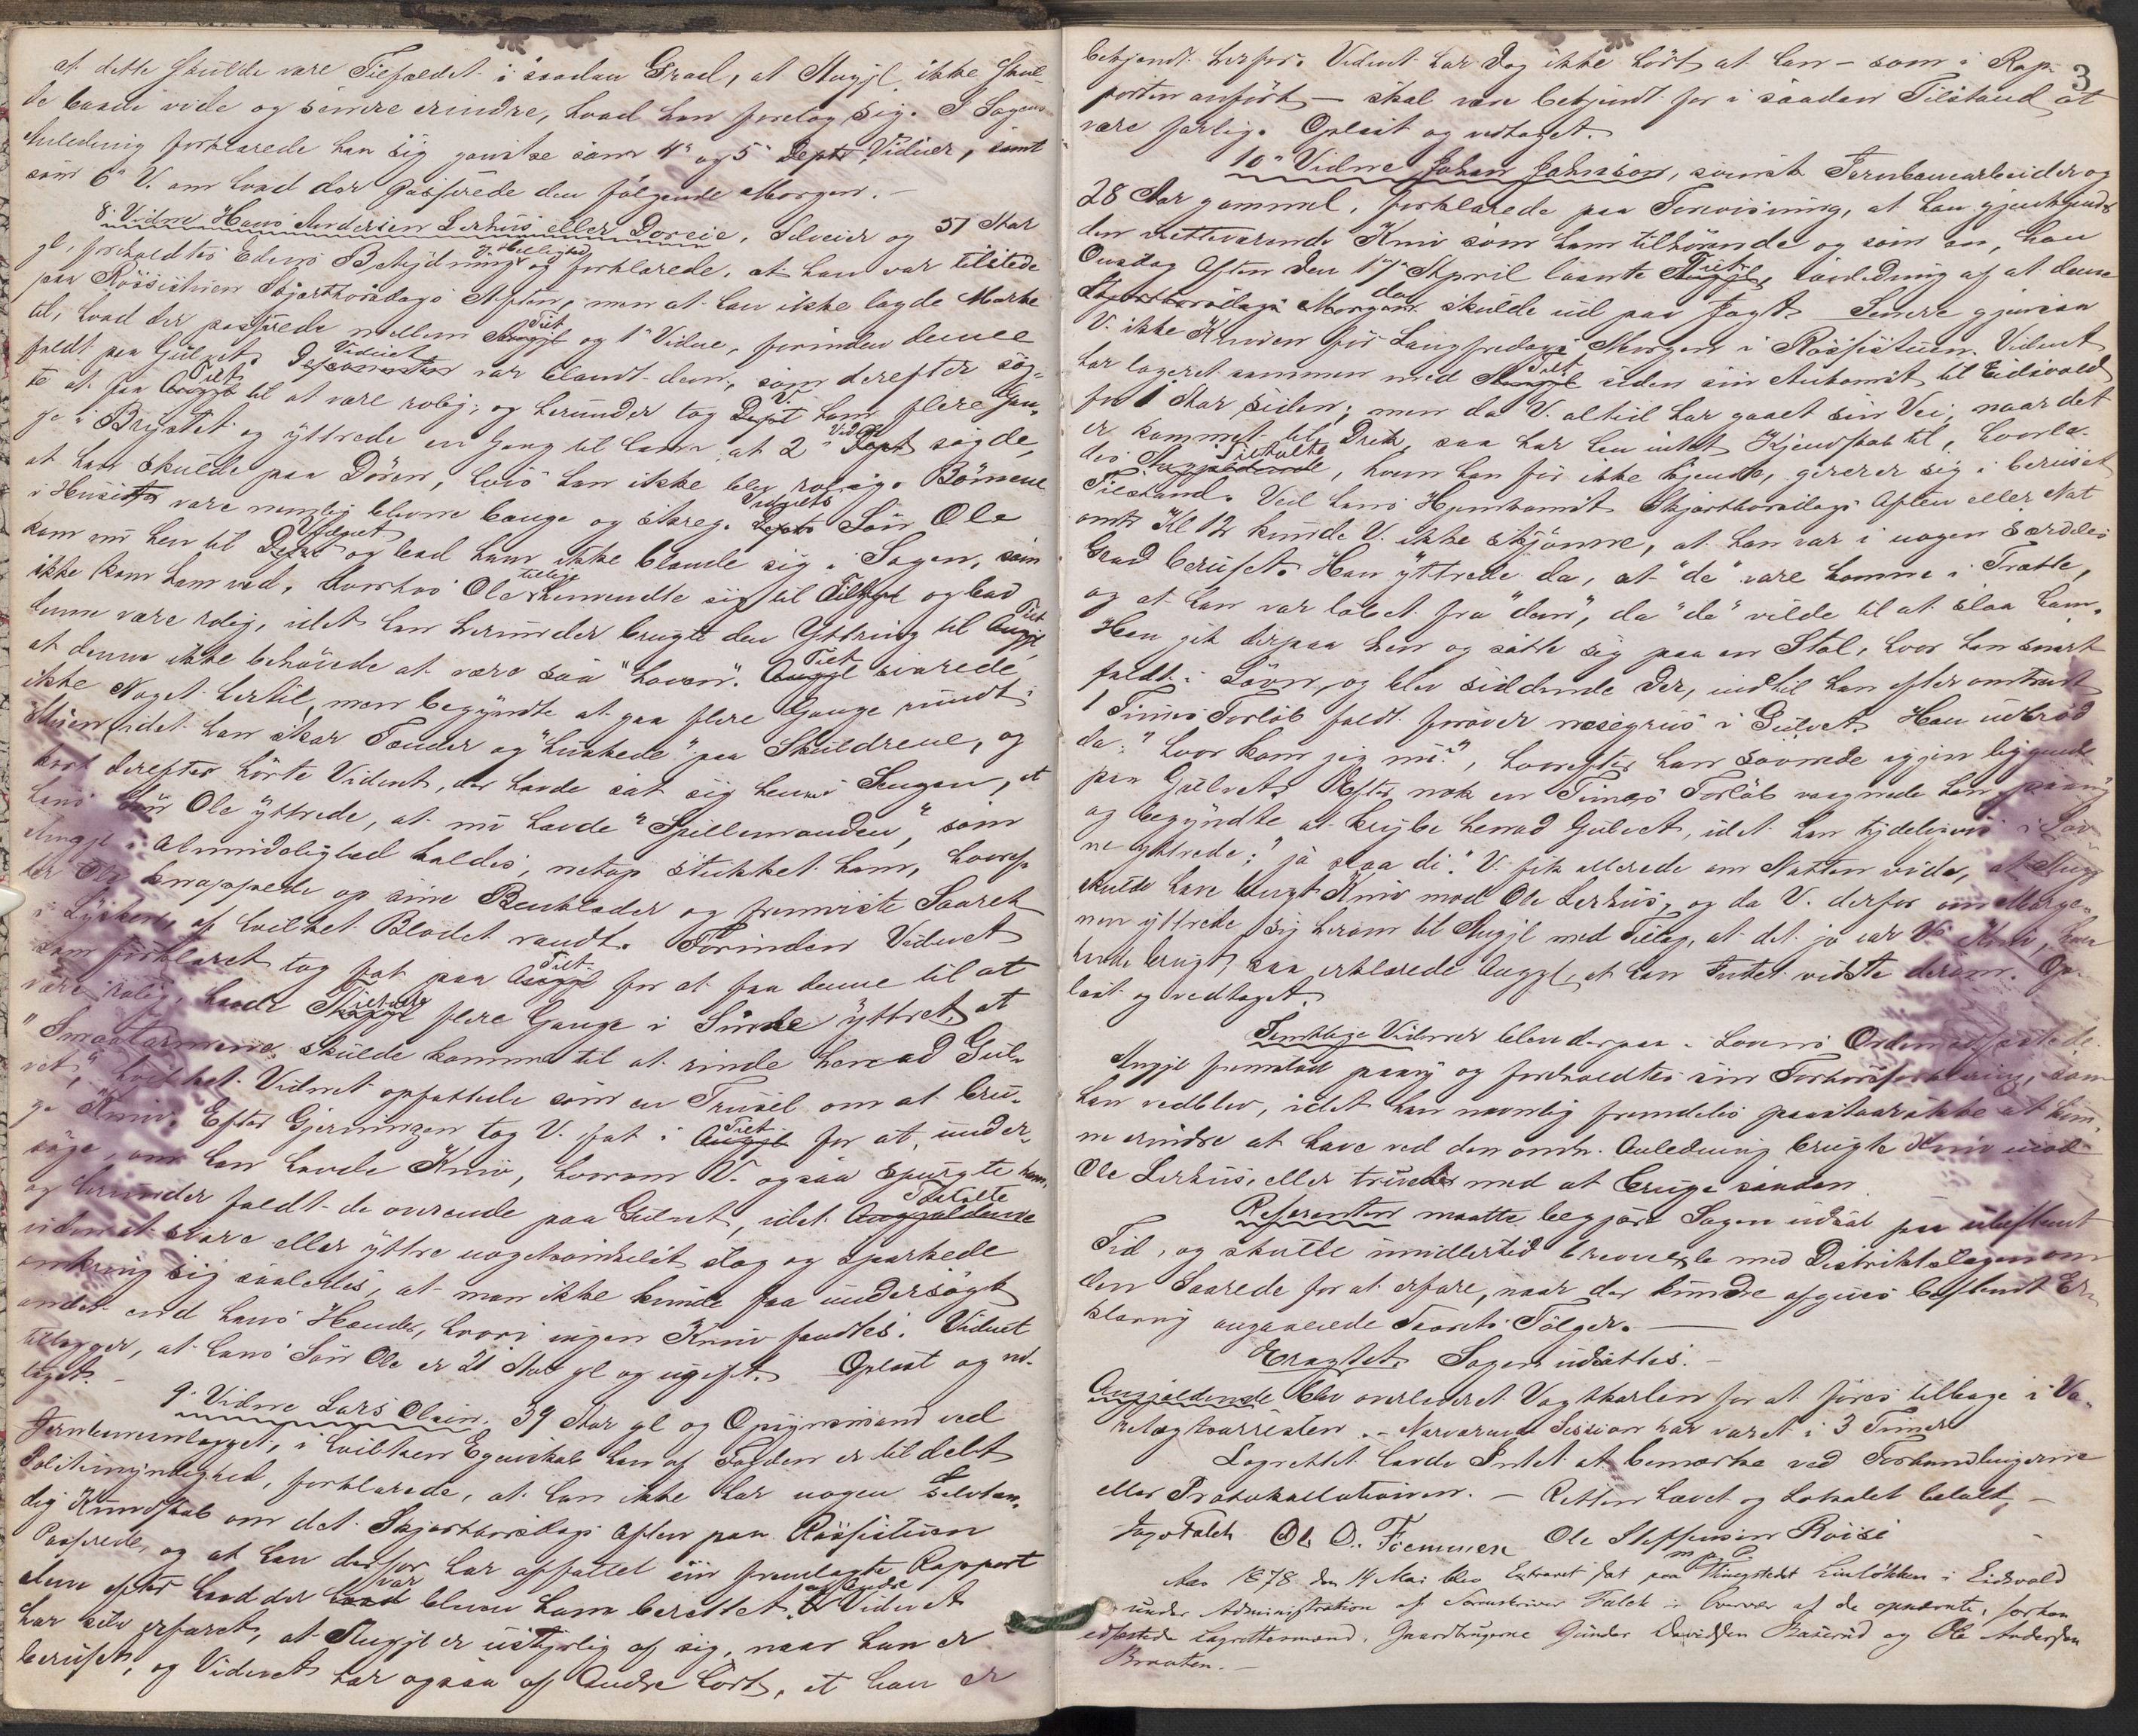 at dette skulde være Tilfældet i saadan Grad, at Angjl ikke skul-
de kunne vide og senere erindre, hvad han foretog sig. I Sagens
Anledning forklarede han sig ganske som 4de og 5te Depts Vidner, samt
som 6te V. om hvad der passerede den følgende Morgen.-
8. Vidne Hans Andersen Lerhus eller Doreie, Selveier og 51 Aar
gl, foreholdtes Edens Betydning og Hellighed og forklarede, at han var tilstede
paa Røssistuen Skjærthorsdags Aften, men at han ikke lagde Mærke
til, hvad der passerede mellem Angjl Tilt og 1ste Vidne, forinden denne
faldt paa Gulvet. Deponenten Vidnet var blandt dem, som derefter søg-
te at faa Angjl Tilt. til at være rolig, og herunder tog Dept V. ham flere Gan-
ge i Brystet og yttrede en Gang til ham at 2det Dept Vidne sagde,
at han skulde paa Døren, hvis han ikke blev rolig. Børnene
i Huset vare nemlig blevne bange og skreg. Depts Vidnets Søn Ole
kom nu hen til Dept Vidnet og bad ham ikke blande sig i Sagen, som
ikke kom ham ved, hvorhos Ole tillige henvendte sig til Tiltalt og bad
denne være rolig, idet han herunder brugte den Yttring til Angjl, Tilt
at denne ikke behøvede at være saa "hoven". Angjl Tilt svarede
ikke Noget hertil, men begyndte at gaa flere Gange rundt i
Stuen, idet han skar Tænder og "huskede" paa Skuldrene, og
kort derefter hørte Vidnet, der havde sat sig hen i Sengen, at
hans Søn Ole yttrede, at nu havde "Spillemanden", som
Angjl i Almindelighed kaldes, netop stukket ham, hvoref-
ter Ole knappede op sine Benklæder og fremviste Saaret
i Lysken, af hvilket Blodet randt. Forinden Vidnet
som forklaret tog fat paa Angjl Tilt for at faa denne til at
være rolig, havde Angjl Tiltalte flere Gange i Sinde yttret, at
"Smaatarmene" skulde komme til at rinde henad Gul-
vet", hvilket Vidnet opfattede som en Trusel om at bru-
ge Kniv. Efter Gjerningen tog V. fat i Angjl Tilt for at under-
søge, om han havde Kniv, hvorom V. ogsaa spurgte ham,
og herunder faldt de overende paa Gulvet, idet Angjældende Tiltalte
uden at svare eller yttre nogetsomhelst slog og sparkede
omkring sig saaledes, at man ikke kunde faa undersøgt
andet end hans Hænder, hvori ingen Kniv fandtes. Vidnet
tillægger, at hans Søn Ole er 21 Aar gl og ugift. Oplæst og ved-
taget.-
9. Vidne Lars Olsen, 39 Aar gl og Opsynsmand ved
Jernbaneanlægget, i hvilken Egenskab han af Fogden er tildelt
Politimyndighed, forklarede, at han ikke har nogen selvstæn-
dig Kundskab om det Skjærthorsdags Aften paa Røssistuen
Passerede, og at han derfor har affattet sin fremlagte Rapport
alene efter hvad der hvad var bleven ham berettet. af Andre Vidnet
har selv erfaret, at Angjl er ustyrlig af sig, naar han er
beruset, og Vidnet har ogsaa af Andre hørt, at han er
3
bekjendt herfor. Vidnet har dog ikke hørt at han - som i Rap-
porten anført - skal være bekjendt for i saadan Tilstand at
være farlig. Oplæst og vedtaget.
10de Vidne Johan Johnson, svensk Jernbanearbeider og
28 Aar gammel, forklarede paa Forevisning, at han gjenkjendte
den retteværende Kniv som ham tilhørende og som en, han
Onsdag Aften den 17de April laante Angjl, Tilt. i Anledning af at denne
Skjærthorsdags Morgen da skulde ud paa Jagt. Senere gjensaa
V. ikke Kniven før Langfredags Morgen i Røssistuen. Vidnet
har logeret sammen med Angjl Tilt siden sin Ankomst til Eidsvold
for 1 Aar siden; men da V. altid har gaaet sin Vei, naar det
er kommet til Drik, saa har han intet Kjendskab til, hvorle-
des Angjældende Tiltalte, hvem han før ikke kjendte, gererer sig i beruset
Tilstand. Ved hans Hjemkomst Skjærthorsdags Aften eller Nat
omtr Kl 12 kunde V. ikke skjønne, at han var i nogen særdeles
Grad beruset. Han yttrede da, at "de" vare komne i Trætte,
og at han var løbet fra "dem", da "de" vilde til at slaa ham.
Han gik derpaa hen og satte sig paa en Stol, hvor han snart
faldt i Søvn, og blev siddende der, indtil han efter omtrent
1 Times Forløb faldt forover næsegrus i Gulvet. Han udbrød
da: "hvor kom jeg nu?", hvorefter han sovnede igjen liggende
paa Gulvet. Efter nok en Times Forløb vaagnede han paany
og begyndte at krybe henad Gulvet, idet han tydeligvis i Søv-
ne yttrede: "ja slaa di". V. fik allerede om Natten vide, at Angjl
skulde have brugt Kniv mod Ole Lerhus, og da V. derfor om Morge-
nen yttrede sig herom til Angjl med Tillæg, at det jo var V's Kniv, han
havde brugt, saa erklærede Angjl, at han Intet vidste derom. Op-
læst og vedtaget.
Samtlige Vidner bleve derpaa i Lovens Orden edfæstede.
Angjl fremstod paany og foreholdtes sin Forhørsforklaring, som
han vedblev, idet han nemlig fremdeles paastaar ikke at kun-
ne erindre at have ved den omh. Anledning brugt Kniv mod
Ole Lerhus, eller truet med at bruge saadan.
Referenten maatte begjære Sagen udsat paa ubestemt
Tid, og skulle imidlertid brevvexle med Distriktslægen om
den Saarede for at erfare, naar der kunde afgives bestemt Er-
klæring angaaende Saarets Følger. -
Eragtet. Sagen udsættes.-
Angjældende blev overleveret Vagtkarlen for at føres tilbage i Va-
retægtsarresten.- Nærværende Session har varet i 3 Timer
Lagrettet havde Intet at bemærke ved Forhandlingerne
eller Protokollationen. - Retten hævet og Lokalet betalt,-
Ole Steffensen Røise
m. p. P.
Aar 1878 den 14 Mai blev Extraret sat paa Thingstedet i Eidsvold
under Administration af Sorenskriver Falch i Overvær af de opnævnte, forhen
edfæstede Lagrettesmænd, Gaardbrugerne Gunder Davidsen og Ole Andersen
Braaten.-